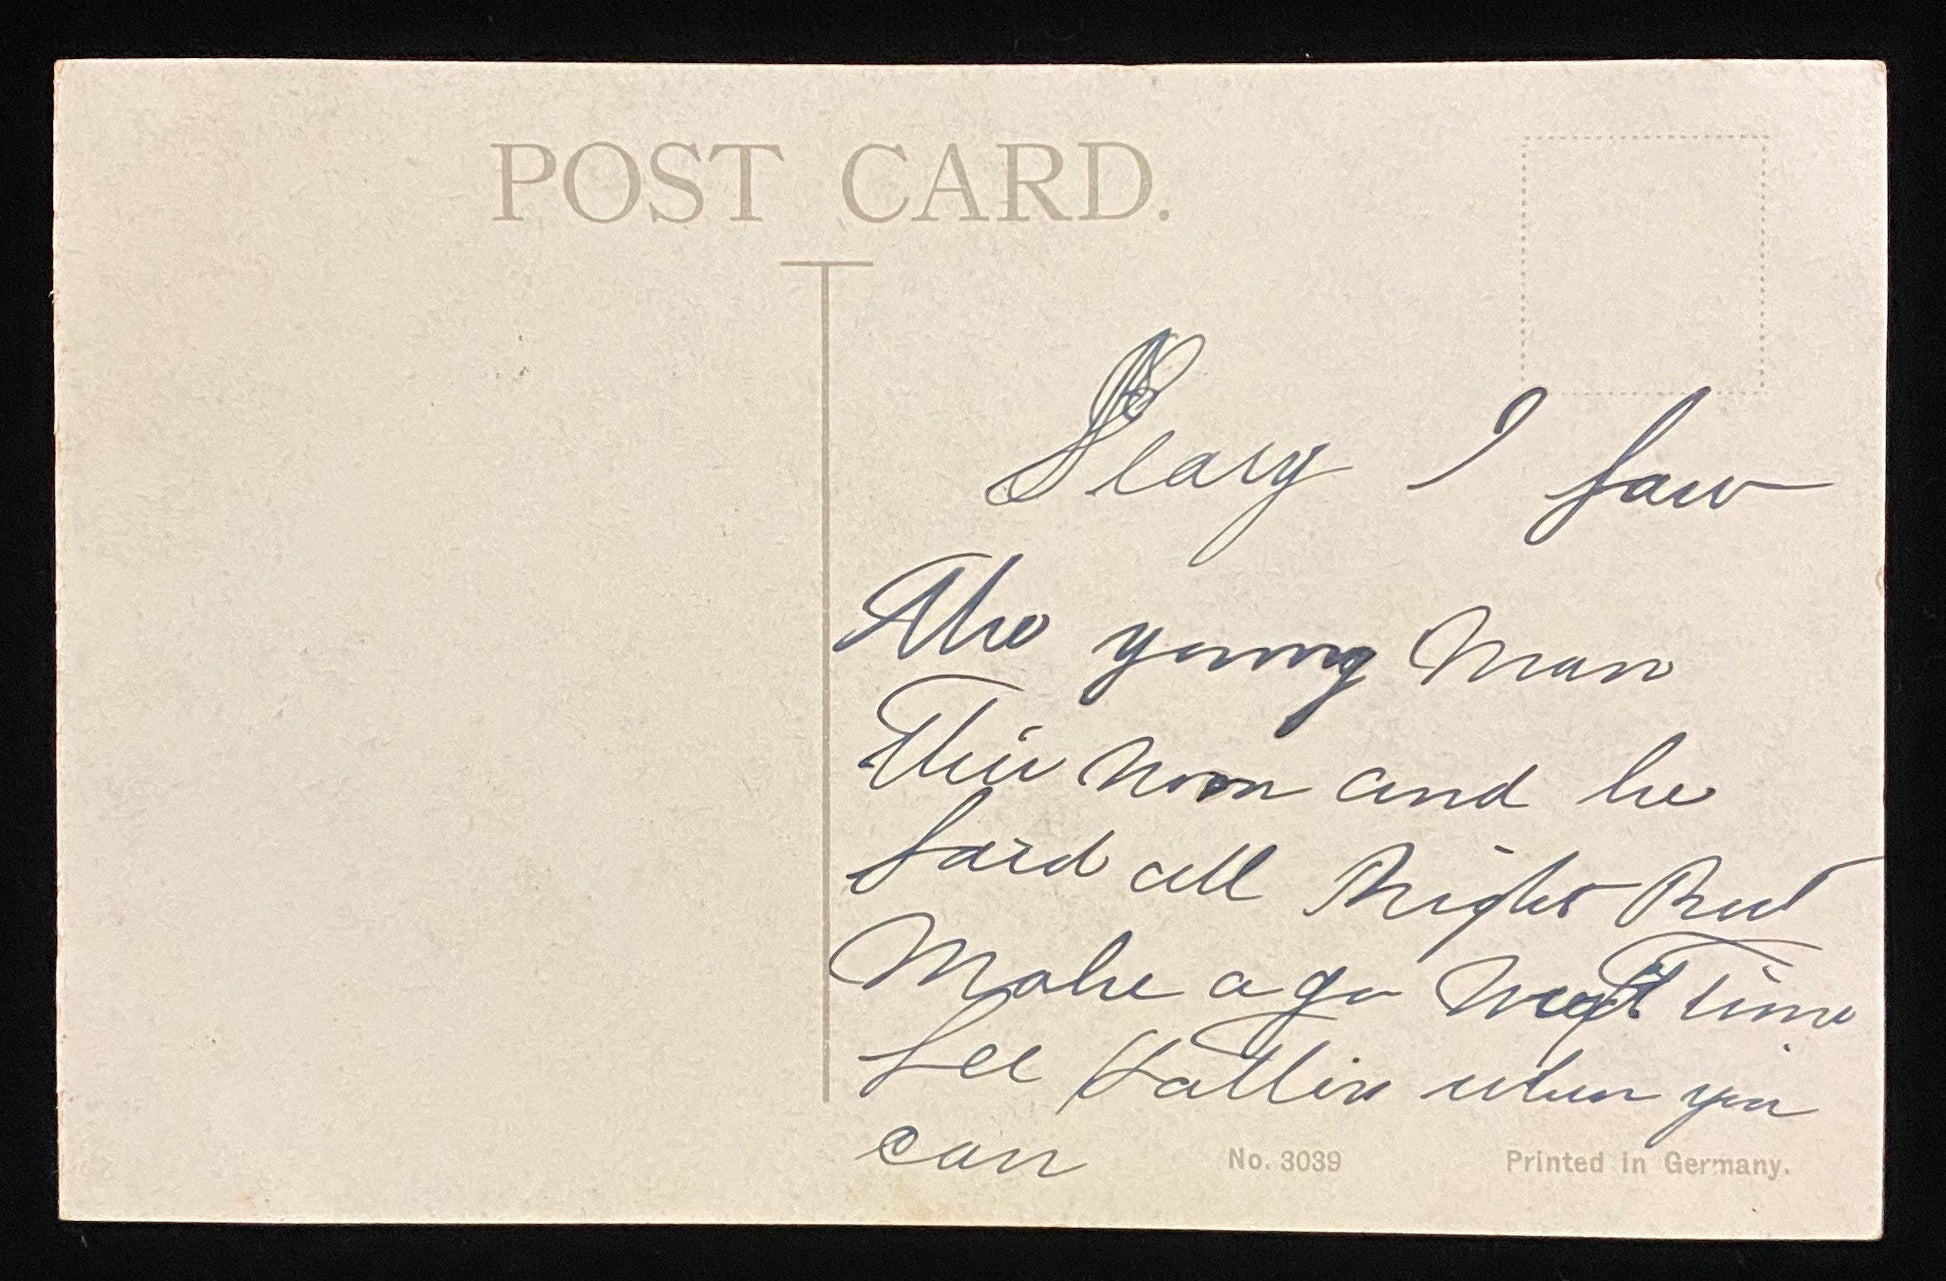 POST CARD.
I saw
The young Man
This noon and he
said all Right But
Make a go Next time
See when you
can
No. 3039
Printed in Germany.